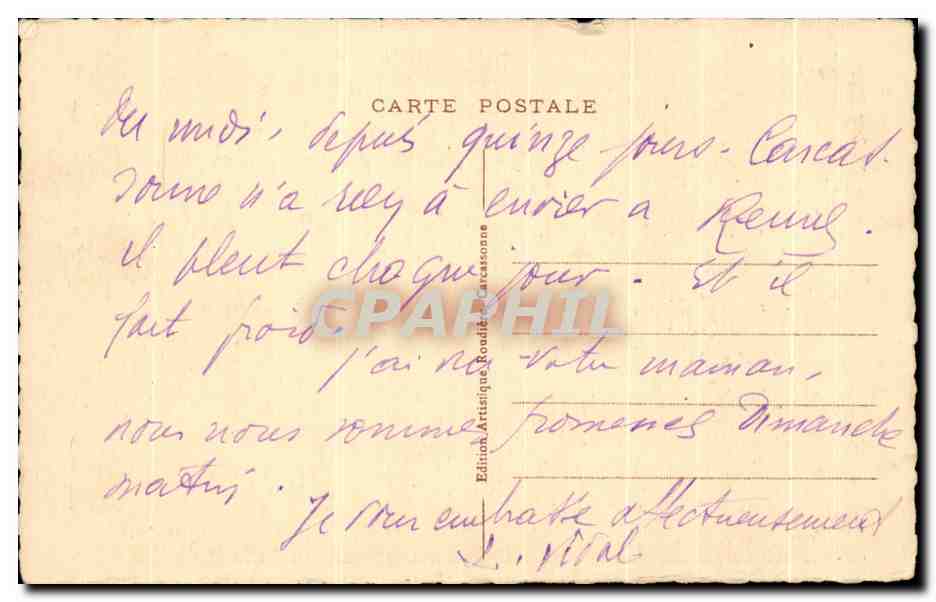 CARTE POSTALE
du midi, depuis quinze jours. Carcas-
sonne n'a rien à envier a Rennes.
il pleut chaque jour. Et il
fait froid.
j'ai vu votre maman,
nous nous sommes promenés Dimanche
matin.
Je vous embrasse affectueusement
L. Vidal
Edition Artistique Roudière Carcassonne
CPAPHIL